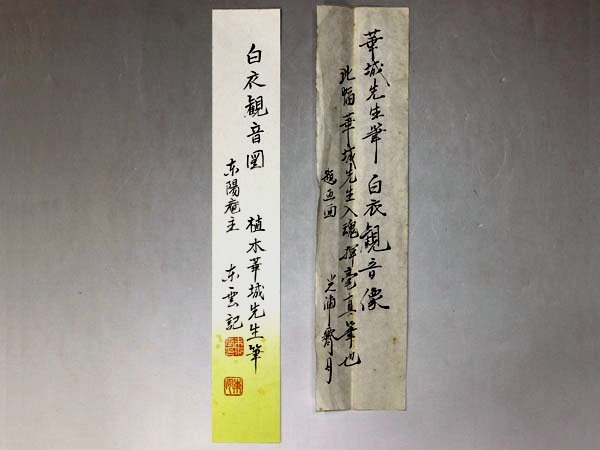 華城先生筆 白衣観音像
此幅華城先生入魂揮毫真筆也
題画回
光浦霽月
白衣観音図 植木華城先生筆
东陽庵主 东雲記